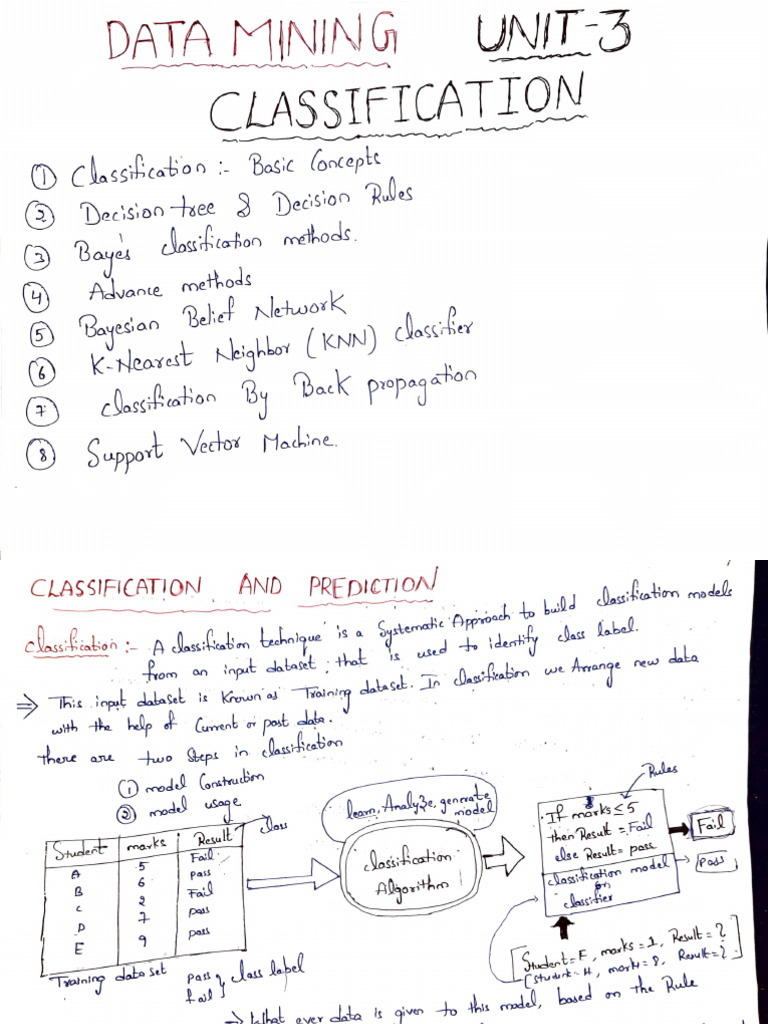 DATA MINING UNIT-3
CLASSIFICATION
① Classification :- Basic Concepts
② Decision tree & Decision Rules
③ Baye's classification methods.
④ Advance methods
⑤ Bayesian Belief Network
⑥ K-Nearest Neighbor (KNN) classifier
⑦ classification By Back propagation
⑧ Support Vector Machine.
CLASSIFICATION AND PREDICTION
classification :- A classification technique is a Systematic Approach to build classification models
from an input dataset ; that is used to identify class label.
⇒ This input dataset is known as Training dataset. In classification we Arrange new data
with the help of Current or past data.
there are two Steps in classification
① model Construction
② model usage
Student marks Result
A 5 Fail
B 6 pass
C 2 Fail
D 7 pass
E 9 pass
class
Training data set
pass
fail
class label
learn, Analyze, generate
model
classification
Algorithm
Rules
If marks ≤ 5
then Result = Fail
else Result = pass
classification model
or
classifier
Fail
pass
Student = F, marks = 1, Result = ?
Student = H, mark = 8, Result = ?
⇒ What ever data is given to this model, based on the Rule